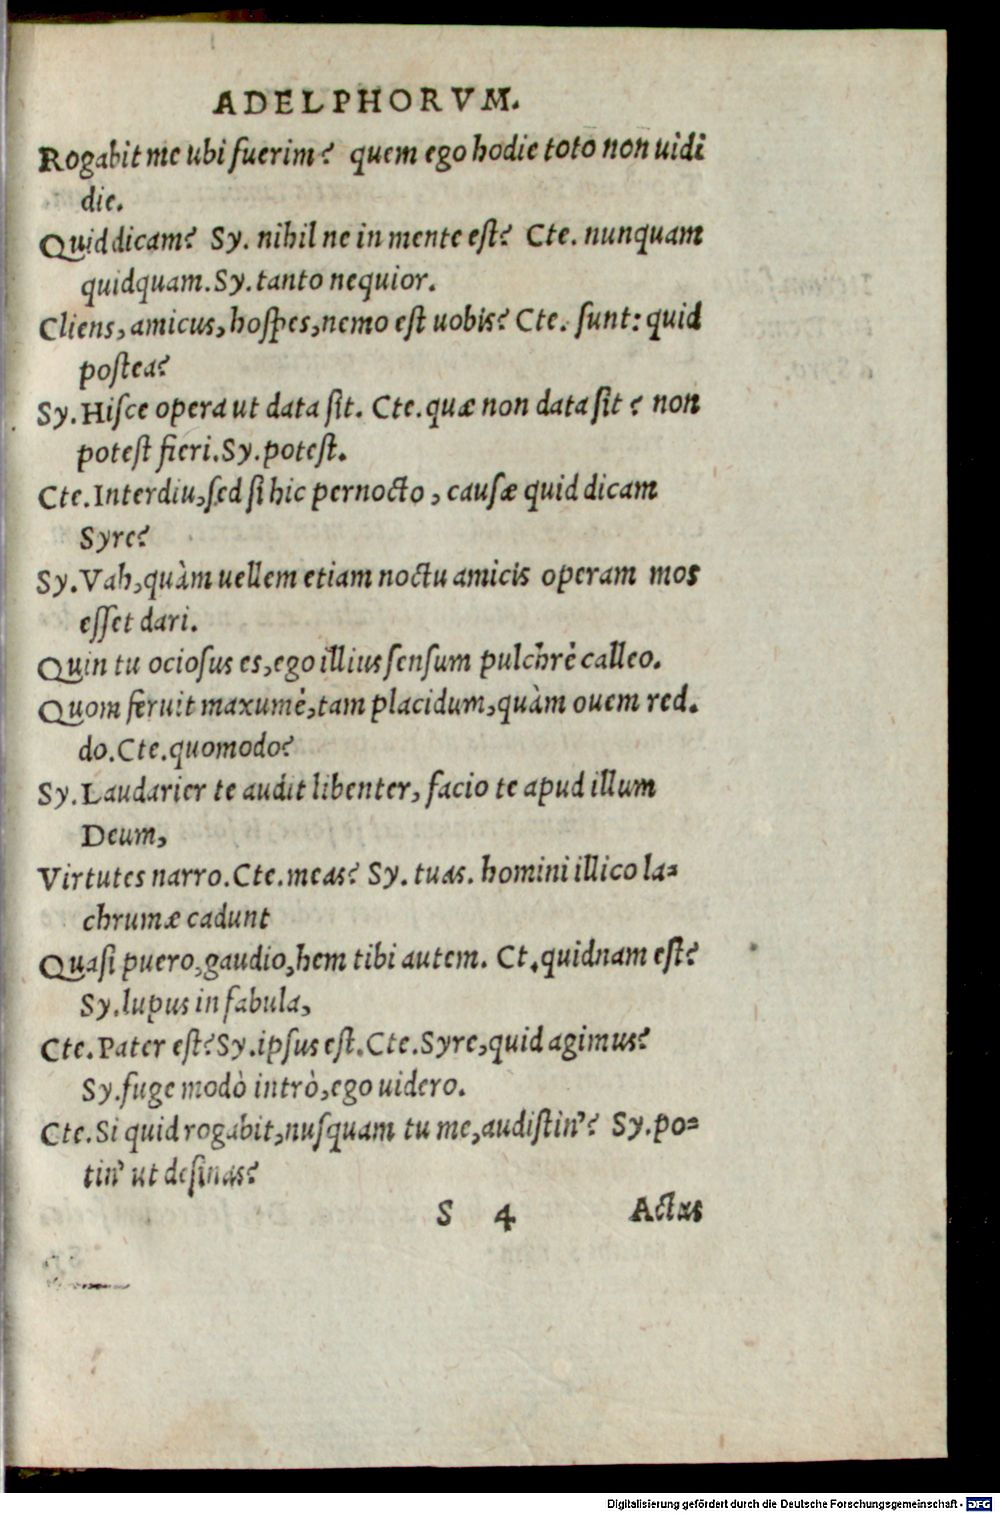 ADELPHORVM.
Rogabit me ubi fuerim? quem ego hodie toto non uidi
die.
Quid dicam? Sy. nihil ne in mente est? Cte. nunquam
quidquam. Sy. tanto nequior.
Cliens, amicus, hospes, nemo est uobis? Cte. sunt: quid
postea?
Sy. Hisce opera ut data sit. Cte. quæ non data sit? non
potest fieri. Sy. potest.
Cte. Interdiu, sed si hic pernocto, causæ quid dicam
Syre?
Sy. Vah, quàm uellem etiam noctu amicis operam mos
esset dari.
Quin tu ociosus es, ego illius sensum pulchrè calleo.
Quom feruit maxumè, tam placidum, quàm ouem red-
do. Cte. quomodo?
Sy. Laudarier te audit libenter, facio te apud illum
Deum,
Virtutes narro. Cte. meas? Sy. tuas. homini illico la-
chrumæ cadunt
Quasi puero, gaudio, hem tibi autem. Ct. quidnam est?
Sy. lupus in fabula,
Cte. Pater est? Sy. ipsus est. Cte. Syre, quid agimus?
Sy. fuge modò intrò, ego uidero.
Cte. Si quid rogabit, nusquam tu me, audistin'? Sy. po-
tin' ut desinas?
S 4 Actus
Digitalisierung gefördert durch die Deutsche Forschungsgemeinschaft - DFG